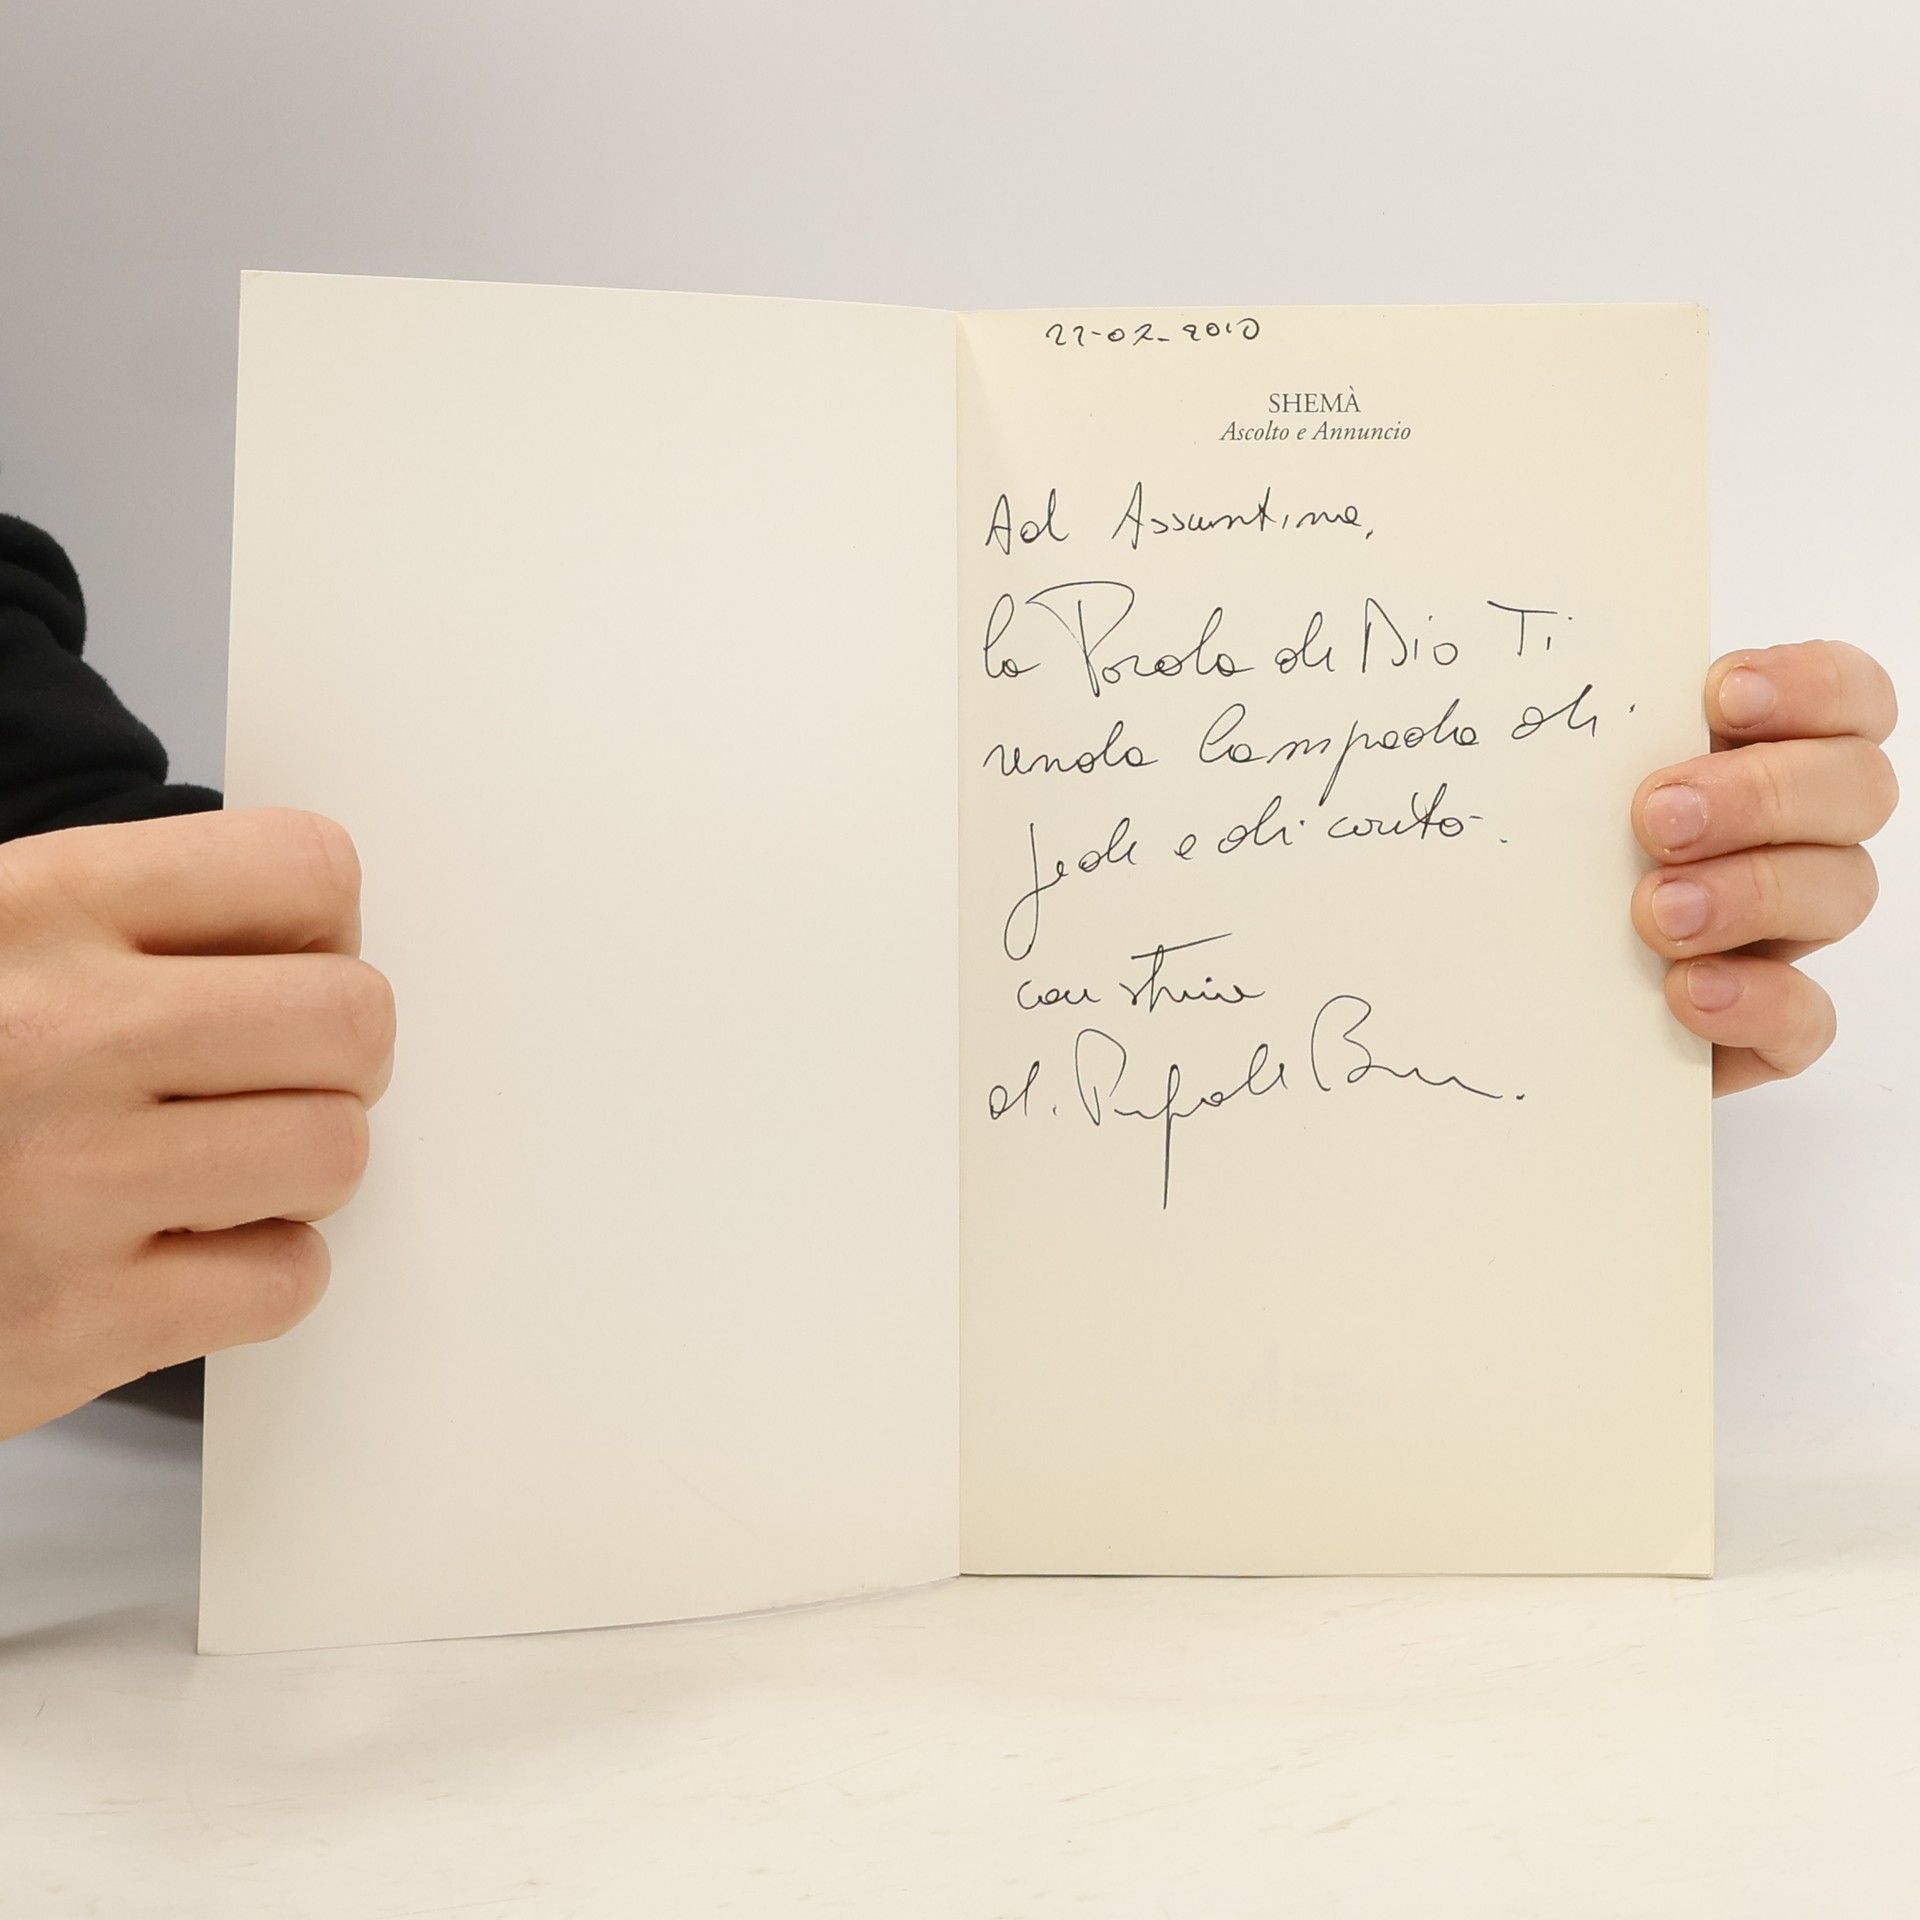 22-02-2010
SHEMÀ
Ascolto e Annuncio
Ad Assuntina,
la Parola di Dio Ti
renda lampada di
fede e di carità.
con stima
d.